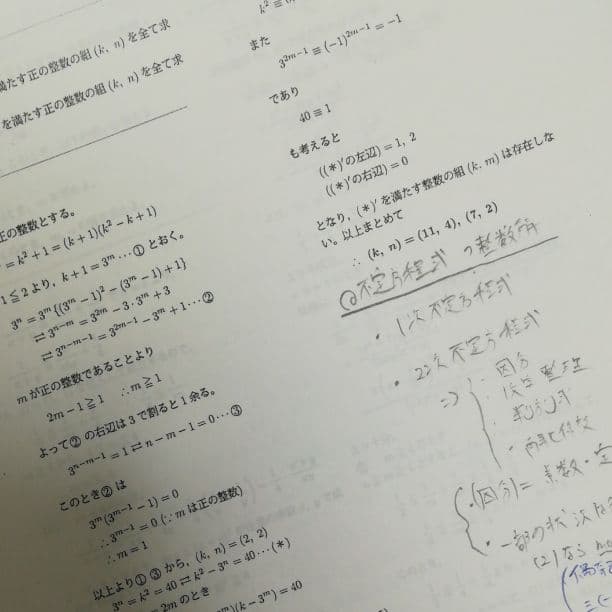 満たす正の整数の組(k, n)を全て求
を満たす正の整数の組(k, n)を全て求
正の整数とする。
= k²+1 = (k+1)(k²-k+1)
1≦2より, k+1=3ᵐ…① とおく。
3ⁿ=3ᵐ{(3ᵐ-1)²-(3ᵐ-1)+1}
⇄3ⁿ⁻ᵐ=3²ᵐ-3·3ᵐ+3
⇄3ⁿ⁻ᵐ⁻¹=3²ᵐ⁻¹-3ᵐ+1…②
mが正の整数であることより
2m-1≧1 ∴m≧1
よって②の右辺は3で割ると1余る。
3ⁿ⁻ᵐ⁻¹=1⇄n-m-1=0…③
このとき②は
3ᵐ(3ᵐ⁻¹-1)=0
∴3ᵐ⁻¹=0(∵mは正の整数)
∴m=1
以上より①③から, (k, n)=(2, 2)
3ᵐ=k²=40⇄k²-3ᵐ=40…(*)
=2mのとき
)(k-3ᵐ)=40
k²≡
また
3²ᵐ⁻¹≡(-1)²ᵐ⁻¹=-1
であり
40≡1
も考えると
((*)′の左辺)=1, 2
((*)′の右辺)=0
となり, (*)′を満たす整数の組(k, m)は存在しな
い。以上まとめて
∴ (k, n)=(11, 4), (7, 2)
不定方程式の整数解
・1次不定方程式
・2次不定方程式
⇒ ・因分
整理
・判別式
(因分)= 素数・定
・一部の
(2)なら